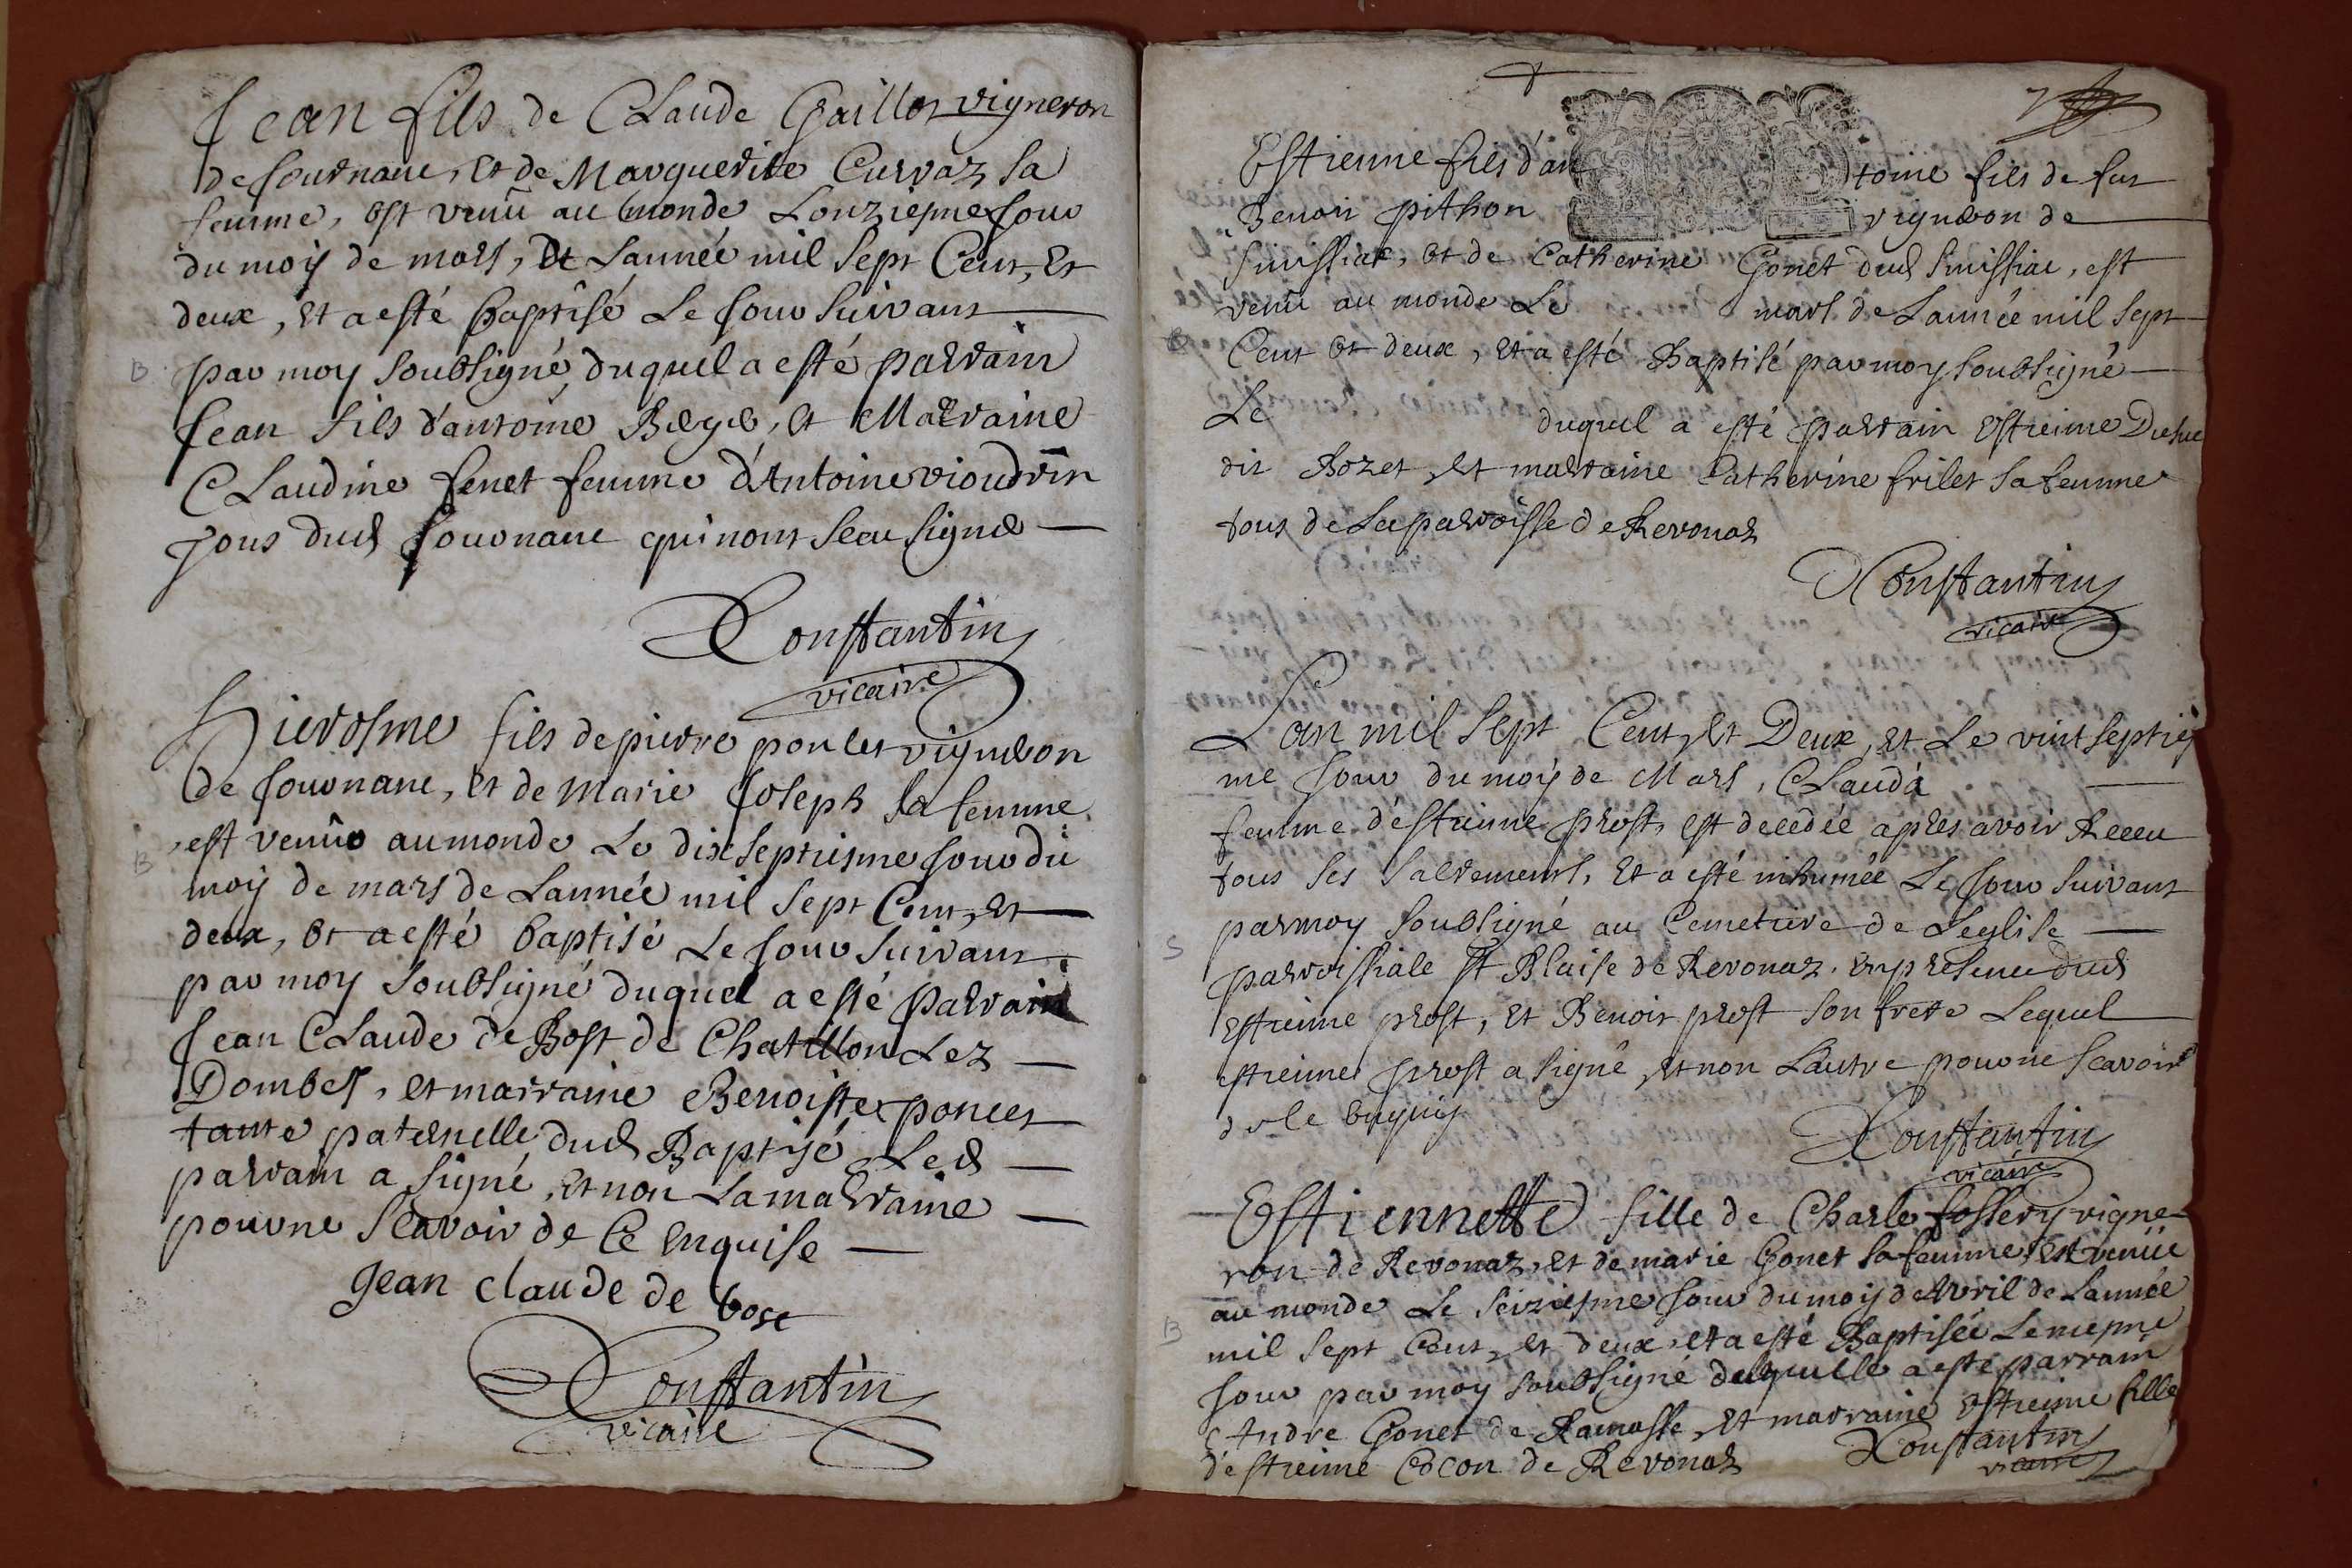 Jean fils de Claude Gaillot vigneron
de Journanc, et de Marguerite Curvaz sa
femme, est venu au monde Lonziesme Jour
du mois de mars, de Lannée mil sept Cent, et
deux, et a esté baptisé Le Jour suivant
B par moy soubsigné, duquel a esté parrain
Jean fils d'antoine et Marraine
Claudine fenet femme d'Antoine vioudrin
tous dud Journanc qui nont sceu signer
Constantin
vicaire
hierosme fils de pierre poncet vigneron
de Journanc, et de marie Joseph sa femme
est venu au monde Le dix septiesme Jour du
B
moys de mars de Lannée mil sept Cent, et
deux, et a esté baptisé Le Jour suivant
par moy soubsigné duquel a esté parrain
Jean Claude de Bost de Chatillon Lez
Dombes, et marraine Benoiste poncet
tante paternelle dud Baptisé Led
parrain a signé, et non La marraine
pour ne scavoir de Ce enquise
Jean claude de bost
Constantin
vicaire
7
Estienne fils d'an toine fils de fut
Benoit pithon vigneron de
Simissiat, et de Catherine Gonet dud Simissiat, est
venu au monde Le mars de Lannée mil sept
B Cent et deux, et a esté Baptisé par moy soubsigné
Le duquel a esté parrain Estienne
dit Rozet, et marraine Catherine frilet sa femme
tous de La parroisse de Revonaz
Constantin
vicaire
Lan mil sept Cent, et Deux, et Le vint septies
me Jour du mois de Mars, Clauda
femme d'estienne prost, est decedée apres avoir Receu
tous ses sacrements, et a esté inhumée Le Jour suivant
parmoy soubsigné au Cemetiere de Leglise
S parroissiale St Blaise de Revonaz. en presence dud
Estienne prost, et Benoit prost son frere Lequel
estienne prost a signé, et non Lautre pour ne scavoir
de le enquis
Constantin
vicaire
Estiennette fille de Charle fossery vigne
ron de Revonaz, et de marie Gonet sa femme, est venüe
au monde Le seiziesme Jour du mois de Avril de Lannée
B mil sept Cent, et deux, et a esté Baptisée Le mesme
Jour par moy soubsigné delaquelle a esté parrain
Andre Gonet de Ramasse, et marraine Estienne fille
d'estienne Cocon de Revonaz
Constantin
vicaire